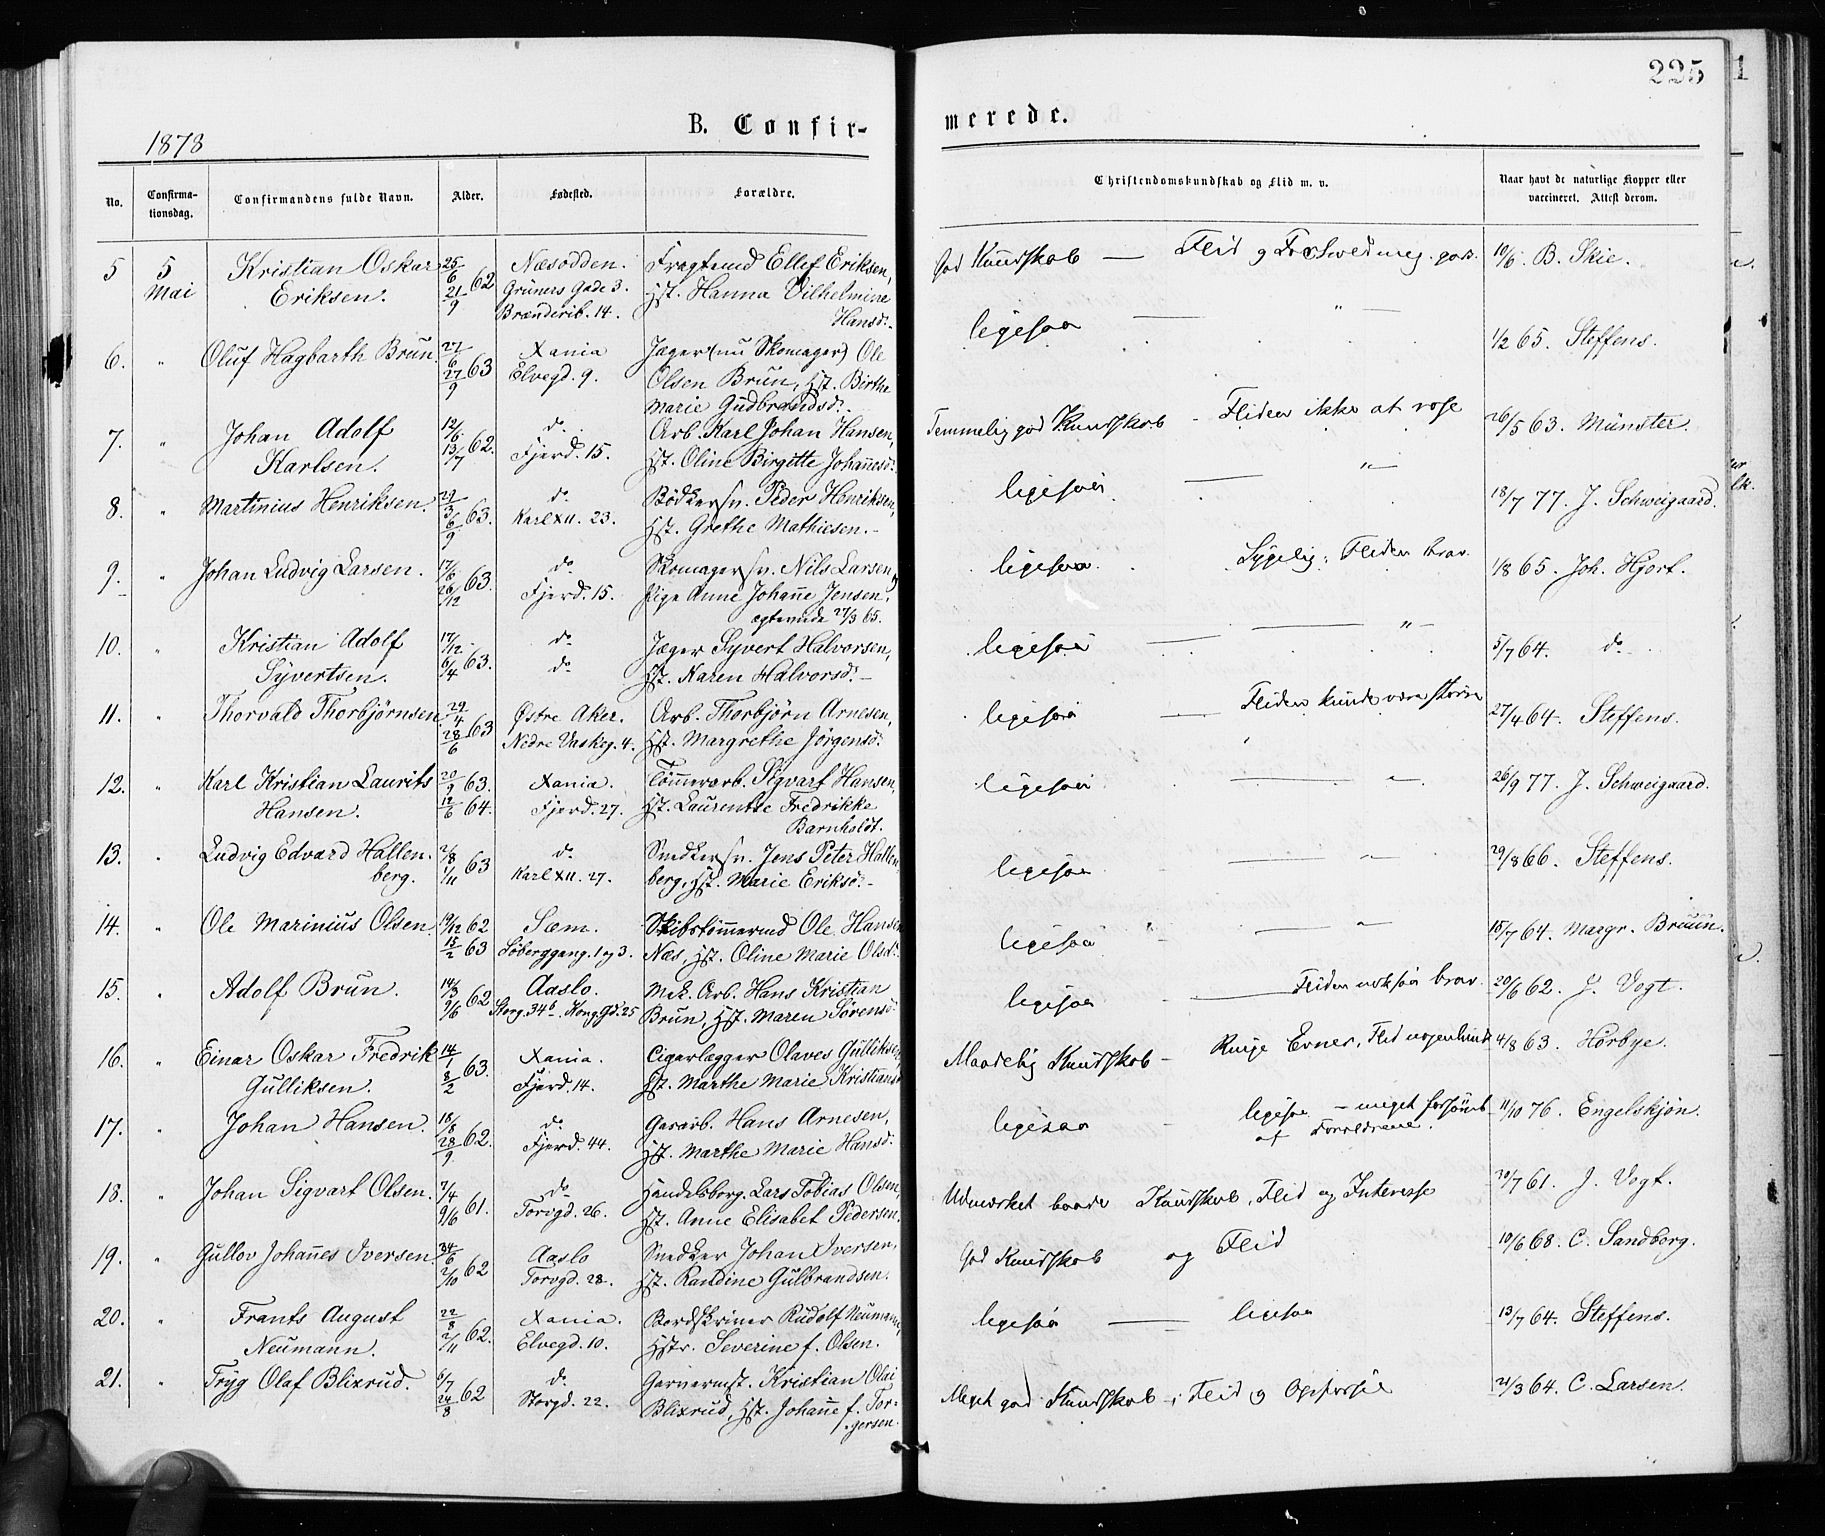 225
1878
B. Confir-
merede.
No.
Confirma-
tionsdag.
Confirmandens fulde Navn.
Alder.
Fødested.
Forældre.
Christendomskundskab og Flid m. v.
Naar havt de naturlige Kopper eller
vaccineret. Attest derom.
5 5 Kristian Oskar 25/6 62 Næsodden. Fragtemd Ellef Eriksen, God Kundskab — Flid 10/6 B. Skie.
Mai Eriksen. 21/9 Grüners Gade 3. Hst. Hanna Vilhelmine
Brænderib. 14. Hansd.
6. " Oluf Hagbarth Brun. 27/6 63 Xania Jæger (nu Skomager) Ole ligesaa — " — 1/2 65. Steffens.
27/9 Elvegd. 9. Olsen Brun, Hst. Birthe
Marie Gudbrandsd.
7. " Johan Adolf 12/6 62. do Arb. Karl Johan Hansen, Temmelig god Kundskab - Fliden ikke at rose 26/5 63. Münster.
Karlsen. 13/7 Fjerd. 15. Hst. Oline Birgitte Johannesd.
8. " Martinius Henriksen. 29/3 63. do Bødkersv. Peder Henriksen, ligesaa — " — 18/7 77. J. Schweigaard.
6/9 Karl XII. 23. Hst. Grethe Mathiesen.
9. " Johan Ludvig Larsen. 17/8 63. do Skomagersv. Nils Larsen og ligesaa. Sygelig; Fliden brav. 1/8 65. Joh. Hjort.
26/12 Fjerd. 15. Pige Anne Johanne Jensen,
egteviede 27/3 65.
10. " Kristian Adolf 17/12 63. do Jæger Syvert Halvorsen, ligesaa — " — 5/7 64. do
Syvertsen. 6/4 do Hst. Karen Halvorsd.
11. " Thorvald Thorbjørnsen. 29/4 63 Østre Aker. Arb. Thorbjörn Arnesen, ligesaa — Fliden kunde være større 27/4 64. Steffens.
28/6 Nedre Vaskeg. 4. Hst. Margrethe Jørgensd.
12. " Karl Kristian Laurits 20/9 63. Xania. Tömmerarb. Sigvart Hansen, ligesaa — " — 26/9 77. J. Schweigaard.
Hansen. 12/6 64. Fjerd. 27. Hst. Laurentse Fredrikke
Barnholdt.
13. " Ludvig Edvard Hallen- 2/8 63 do Snedkersv. Jens Peter Hallen- ligesaa — " — 29/8 66. Steffens.
berg. 1/11 Karl XII. 27. berg, Hst. Marie Eriksd.
14. " Ole Marinius Olsen. 19/12 62 Sæm. Skibstömmermd Ole Hansen ligesaa " " 15/7 64. Margr. Bruun.
15/2 63 Søberggang. 1 og 3. Næs, Hst. Oline Marie Olsd.
15. " Adolf Brun. 14/3 62 Aaslo. Mek. Arb. Hans Kristian ligesaa - Fliden ogsaa brav. 20/6 62. J. Vogt.
9/6 Storg. 34b. Kong.Gd. 25 Brun, Hst. Maren Sørensd.
16. " Einar Oskar Fredrik 14/1 63. Xania. Cigarlægger Olaves Gulliksen, Maadelig Kundskab - Ringe Evner, Flid 4/8 63. Hørbye.
Gulliksen. 8/2 Fjerd. 14. Hst. Marthe Marie Kristians
17. " Johan Hansen. 18/8 62. do Garvarb. Hans Arnesen, ligesaa - ligesaa - meget forsømt 11/10 76. Engelskjøn.
28/9 Fjerd. 44. Hst. Marthe Marie Hansd. af Forældrene.
18. " Johan Sigvart Olsen. 7/4 61. do Handelsborg. Lars Tobias Olsen, Udmærket baade Kundskab, Flid og Interesse 30/7 61. J. Vogt.
9/6 Torvgd. 26. Hst. Anne Elisabet Pedersen.
19. " Gullov Johannes Iversen. 24/6 62 Aaslo Snedker Johan Iversen, God Kundskab og Flid 10/6 68. C. Sandborg.
2/10 Torvgd. 28. Hst. Randine Gulbrandsen.
20. " Frants August 22/8 62. Xania. Bordskriver Rudolf Neumann, ligesaa — ligesaa 13/7 64. Steffens.
Neumann. 2/11 Elvegd. 10. Hstr. Severine f. Olsen.
21. " Tryg Olaf Blixrud. 6/7 62 do Garvermst. Kristian Olai Meget god Kundskab, Flid og Opførsel 21/3 64. C. Larsen.
24/8 Storgd. 22. Blixrud, Hst. Johanne f. Tor-
gersen.